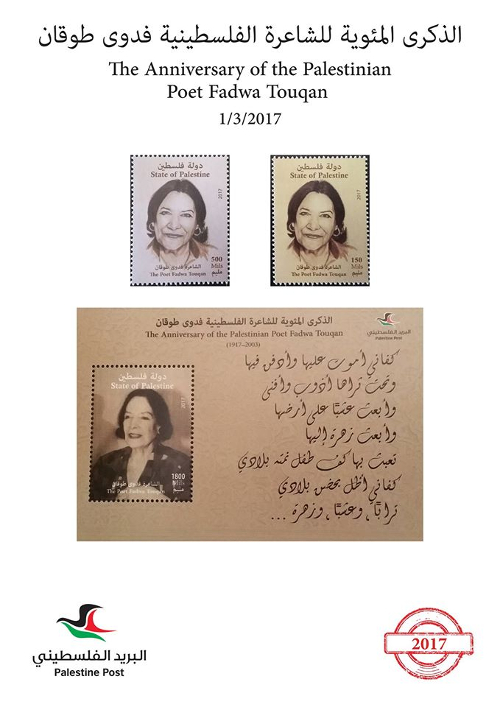 الذكرى المئوية للشاعرة الفلسطينية فدوى طوقان
The Anniversary of the Palestinian
Poet Fadwa Touqan
1/3/2017
دولة فلسطين
State of Palestine
2017
500
Mils
مليم
الشاعرة فدوى طوقان
The Poet Fadwa Touqan
دولة فلسطين
State of Palestine
2017
150
Mils
مليم
الشاعرة فدوى طوقان
The Poet Fadwa Touqan
الذكرى المئوية للشاعرة الفلسطينية فدوى طوقان
The Anniversary of the Palestinian Poet Fadwa Touqan
(1917-2003)
البريد الفلسطيني
Palestine Post
دولة فلسطين
State of Palestine
2017
1800
Mils
مليم
الشاعرة فدوى طوقان
The Poet Fadwa Touqan
كفاني أموت عليها وأدفن فيها
وتحت ثراها أذوب وأفنى
وأبعث عشبًا على أرضها
وأبعث زهرة إليها
تعبث بها كف طفل نمته بلادي
كفاني أظل بحضن بلادي
ترابًا، وعشبًا، وزهرة ...
البريد الفلسطيني
Palestine Post
2017